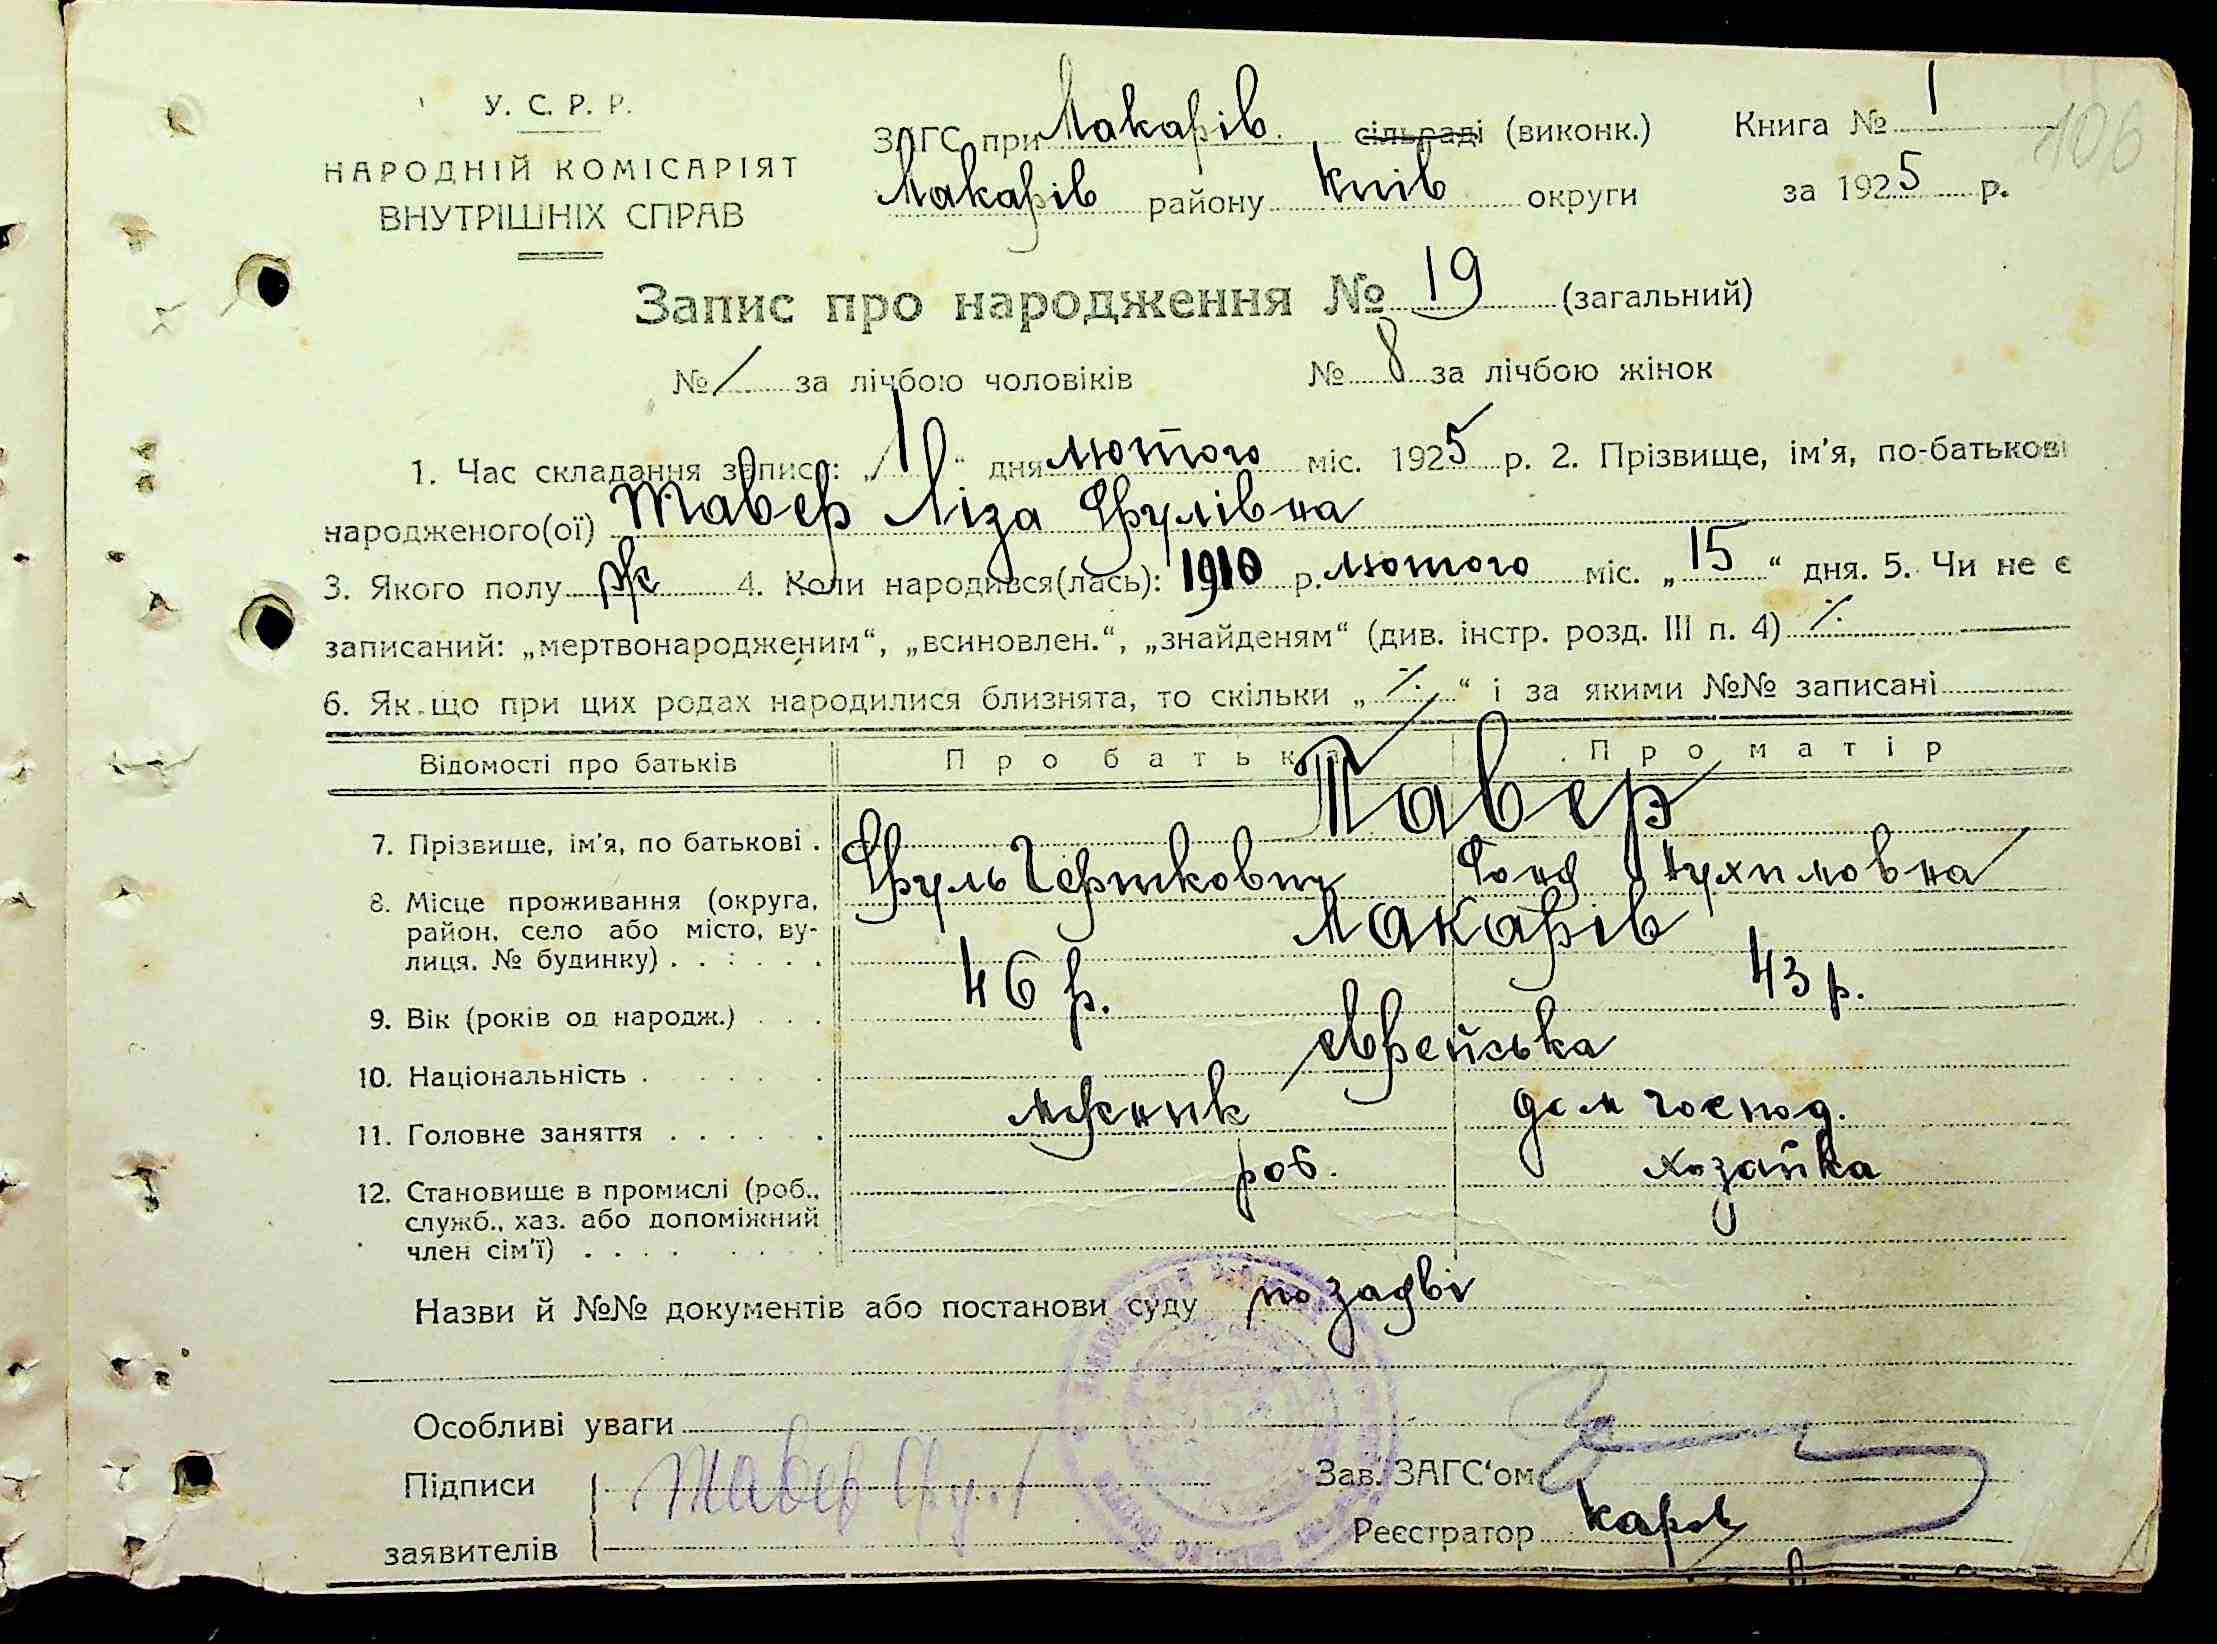 У. С. Р. Р.
НАРОДНІЙ КОМІСАРІЯТ
ВНУТРІШНІХ СПРАВ
ЗАГС при Макарів. сільраді (виконк.) Книга № 1
106
Макарів району Київ округи за 1925 р.
Запис про народження № 19 (загальний)
№ за лічбою чоловіків № 8 за лічбою жінок
1. Час складання запису: „1“ дня лютого міс. 1925 р. 2. Прізвище, ім'я, по-батькові
народженого(ої) Тавер Ліза Фрулівна
3. Якого полу ж 4. Коли народився(лась): 1910 р. лютого міс. „15“ дня. 5. Чи не є
записаний: „мертвонародженим“, „всиновлен.“, „знайденям“ (див. інстр. розд. III п. 4)
6. Якщо при цих родах народилися близнята, то скільки „ “ і за якими №№ записані
Відомості про батьків Про батька Про матір
Тавер
7. Прізвище, ім'я, по батькові . Фруль Гершкович Нухимовна
8. Місце проживання (округа, район, село або місто, вулиця, № будинку) Макарів
9. Вік (років од народж.) 46 р. 43 р.
10. Національність єврейська
11. Головне заняття дом господ.
12. Становище в промислі (роб., служб., хаз. або допоміжний член сім'ї) роб. хозяйка
Назви й №№ документів або постанови суду по заяві
Особливі уваги
Підписи Тавер Зав. ЗАГС'ом
заявителів Реєстратор